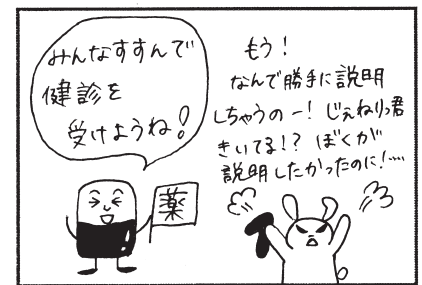 みんなすすんで
健診を
受けようね!
薬
もう!
なんで勝手に説明
しちゃうのー!じぇねりっ君
きいてる!?ぼくが
説明したかったのに!……